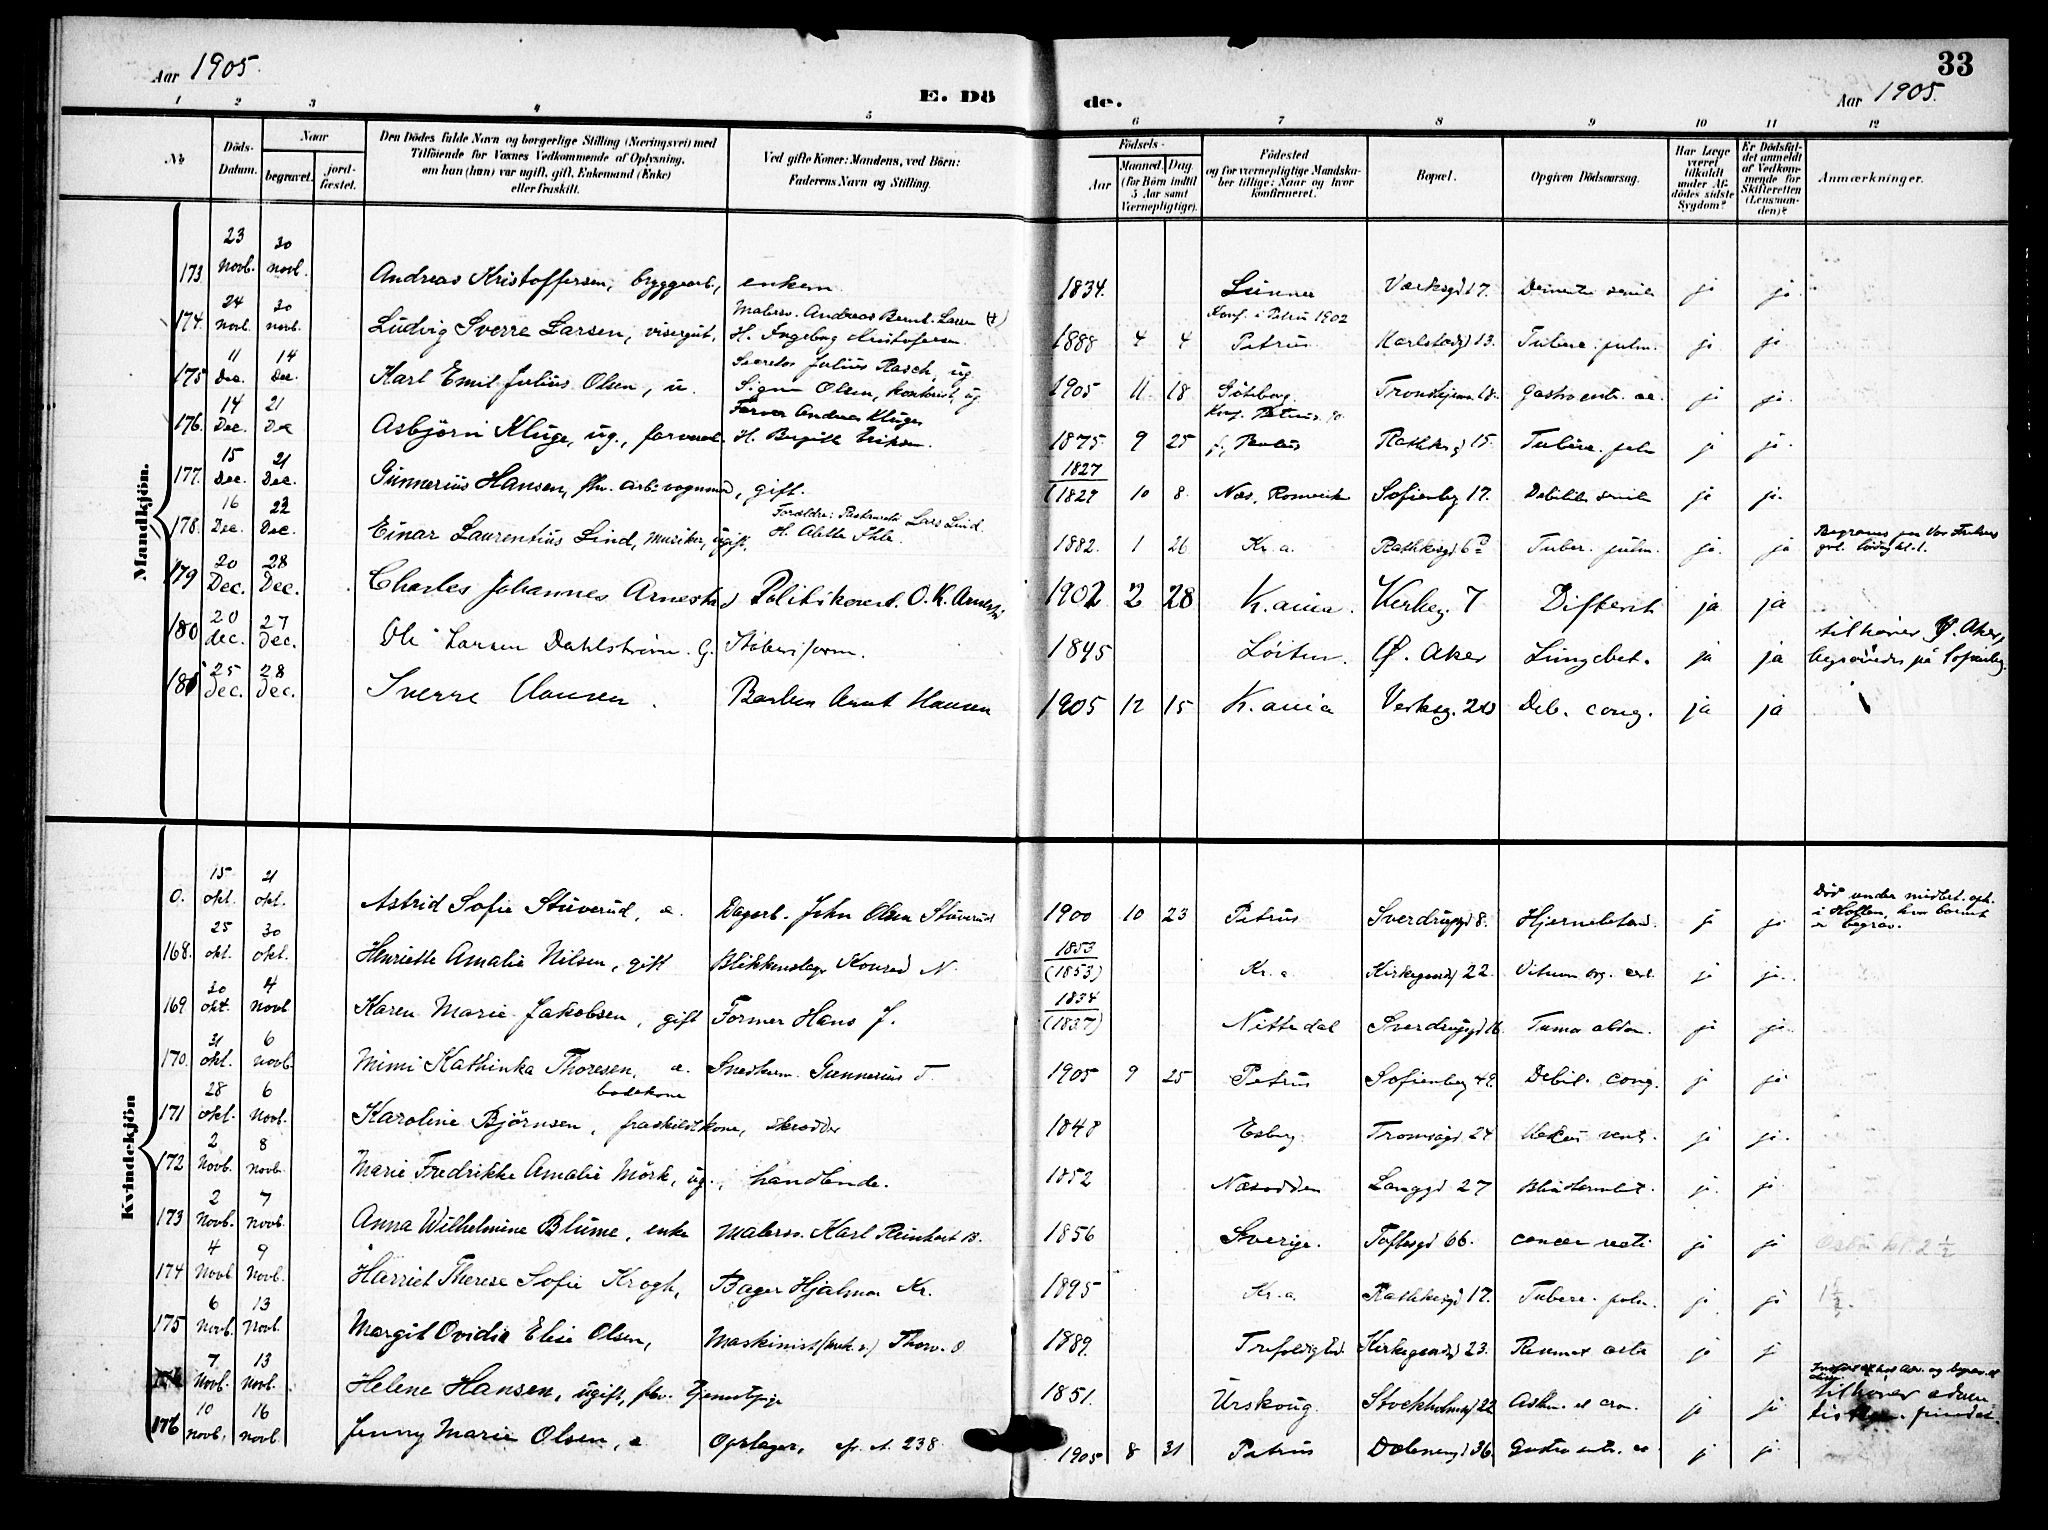 Aar 1905.
E. Dö
de.
33
Aar 1905.
1 2 3 4 5 6 7 8 9 10 11 12
No
Döds-Datum.
Naar
begravet.
jord-fæstet.
Den Dödes fulde Navn og borgerlige Stilling (Næringsvei) med
Tilföiende for Voxnes Vedkommende af Oplysning,
om han (hun) var ugift, gift, Enkemand (Enke)
eller fraskilt.
Ved gifte Koner: Mandens, ved Börn:
Faderens Navn og Stilling.
Födsels-
Aar
Maaned. Dag.
(for Börn indtil
5 Aar samt
Værnepligtige).
Födested
og for værnepligtige Mandska-
ber tillige: Naar og hvor
konfirmeret.
Bopæl.
Opgiven Dödsaarsag.
Har Læge
været
tilkaldt
under Af-
dödes sidste
Sygdom?
Er Dödsfal-
det anmeldt
af Vedkom-
mende for
Skifteretten
(Lensman-
den)?
Anmærkninger.
Mandkjön.
173. 23 Novb. 30 novb. Andreas Kristoffersen, bryggearb., enkem. 1834. Lunner Verksgd 17. Dementia senilis ja ja.
174. 24 Novb. 30 novb. Ludvig Sverre Larsen, visergut. Malersv. Andreas Bernt Larsen (†) H. Ingeborg Kristofersen 1888 4 4 Konf. i Petrus 1902 Petrus Karlstadgd 13. Tuberc. pulm. ja ja.
175 11 Dec. 14 Dec. Karl Emil Julius Olsen, u. Julius Rasch, ug. Signe Olsen, kontorist, ug 1905 11 18 Göteborg. Trondhjemsv. 18. Gastroentr. ac. ja ja.
176. 14 Dec. 21 Dec Asbjörn Kluge, ug., Farver Andreas Kluge H. Birgitte Eriksen. 1875. 9 25 Rathkesg 15. Tuberc. pulm ja ja.
177. 15 Dec. 21 Dec. Gunnerius Hansen, fhv. arb. vognmd, gift. 1827 (1829 10 8. Næs, Romerike Sofienbg 17. Debilitas senilis ja ja.
178. 16 Dec. 22 Dec. Einar Laurentius Lind, musiker, ugift. Forældre: Lars Lind. H. Alette Ihle. 1882. 1 26 Kr.a. Rathkesgd 6 Tuber. pulm. ja. ja Begraves paa Vor Frelsers
179 20 Dec. 28 Dec. Charles Johannes Arnestad Politikonst. O. K. Arnestad 1902 2 28 K.ania. Verksg. 7 Difterit ja ja
180 20 dec. 27 Dec. Ole Larsen Dahlström. G. Støberiform. 1845 Löiten. Ø. Aker Lungebet. ja ja tilhörer Ø. Aker, begravedes på Sofienbg.
181 25 Dec. 28 Dec. Sverre Hansen. Barber Arnt Hansen 1905 12 15 K.ania Verksg. 20 Deb. cong. ja ja
Kvindekjön
0. 15 okt. 21 okt. Astrid Sofie Stuverud, æ. Dagarb. John Olsen Stuverud 1900 10 23 Petrus Sverdrupsgd 8. Hjernebetænd. ja ja. Död under midlert. oph. i Hoffen, hvor barnet er begrav.
168. 25 okt. 30 okt. Henriette Amalie Nilsen, gift Blikkenslager Konrad N. 1853 (1853) Kr.a. Kirkegaardsgd 22. Vitium org. cord. ja ja.
169 30 okt. 4 Novb Karen Marie Jakobsen, gift Former Hans J. 1834 (1837) Nittedal Sverdrupsgd 16. Tumor abdom. ja ja.
170. 31 okt. 6 novb. Mimi Kathinka Thoresen, æ. Snedkerm. Gunnerius T. 1905 9 25 Petrus Sofienberg 49. Debil. cong. ja ja
171 28 okt. 6 Novb. Karoline Björnsen, fraskilt kone, badekone skrædder 1848 Esberg. Tromsögd 24 Ulcus ventr. ja ja.
172 2 Novb. 8 novb. Marie Fredrikke Amalie Mörk, ug., handlende. 1852 Næsodden Langgd 27 ja. ja.
173 2 Novb. 7 Novb. Anna Wilhelmine Blume, enke Malersv. Karl Reinhart B. 1856 Sverige. Toftesgd 66. cancer recti ja ja 2 ½
174 4 Novb 9 Novb. Harriet Therese Sofie Krogh, Bager Hjalmar Kr. 1895 Kr.a. Rathkesgd 17. Tuberc. pulm. ja. ja 1 ½.
175 6 Novb. 13 Novb. Margit Ovidia Elise Olsen, Maskinist (mek. v.) Thorv. O 1889. Trefoldighed. Kirkegaardsgd 23. Reumat. acuta ja ja
7. Novb. 13 Novb. Helene Hansen, ugift, fhv. tjenestepige 1851. Urskoug. Stockholmsgd 22 Asthm. et cron. ja ja tilhörer
176 10 novb. 16 novb. Jenny Marie Olsen, æ Opslager, cfr. 238. 1905 8 31 Petrus Dælenengd 36. Gastroentr. ac ja ja.